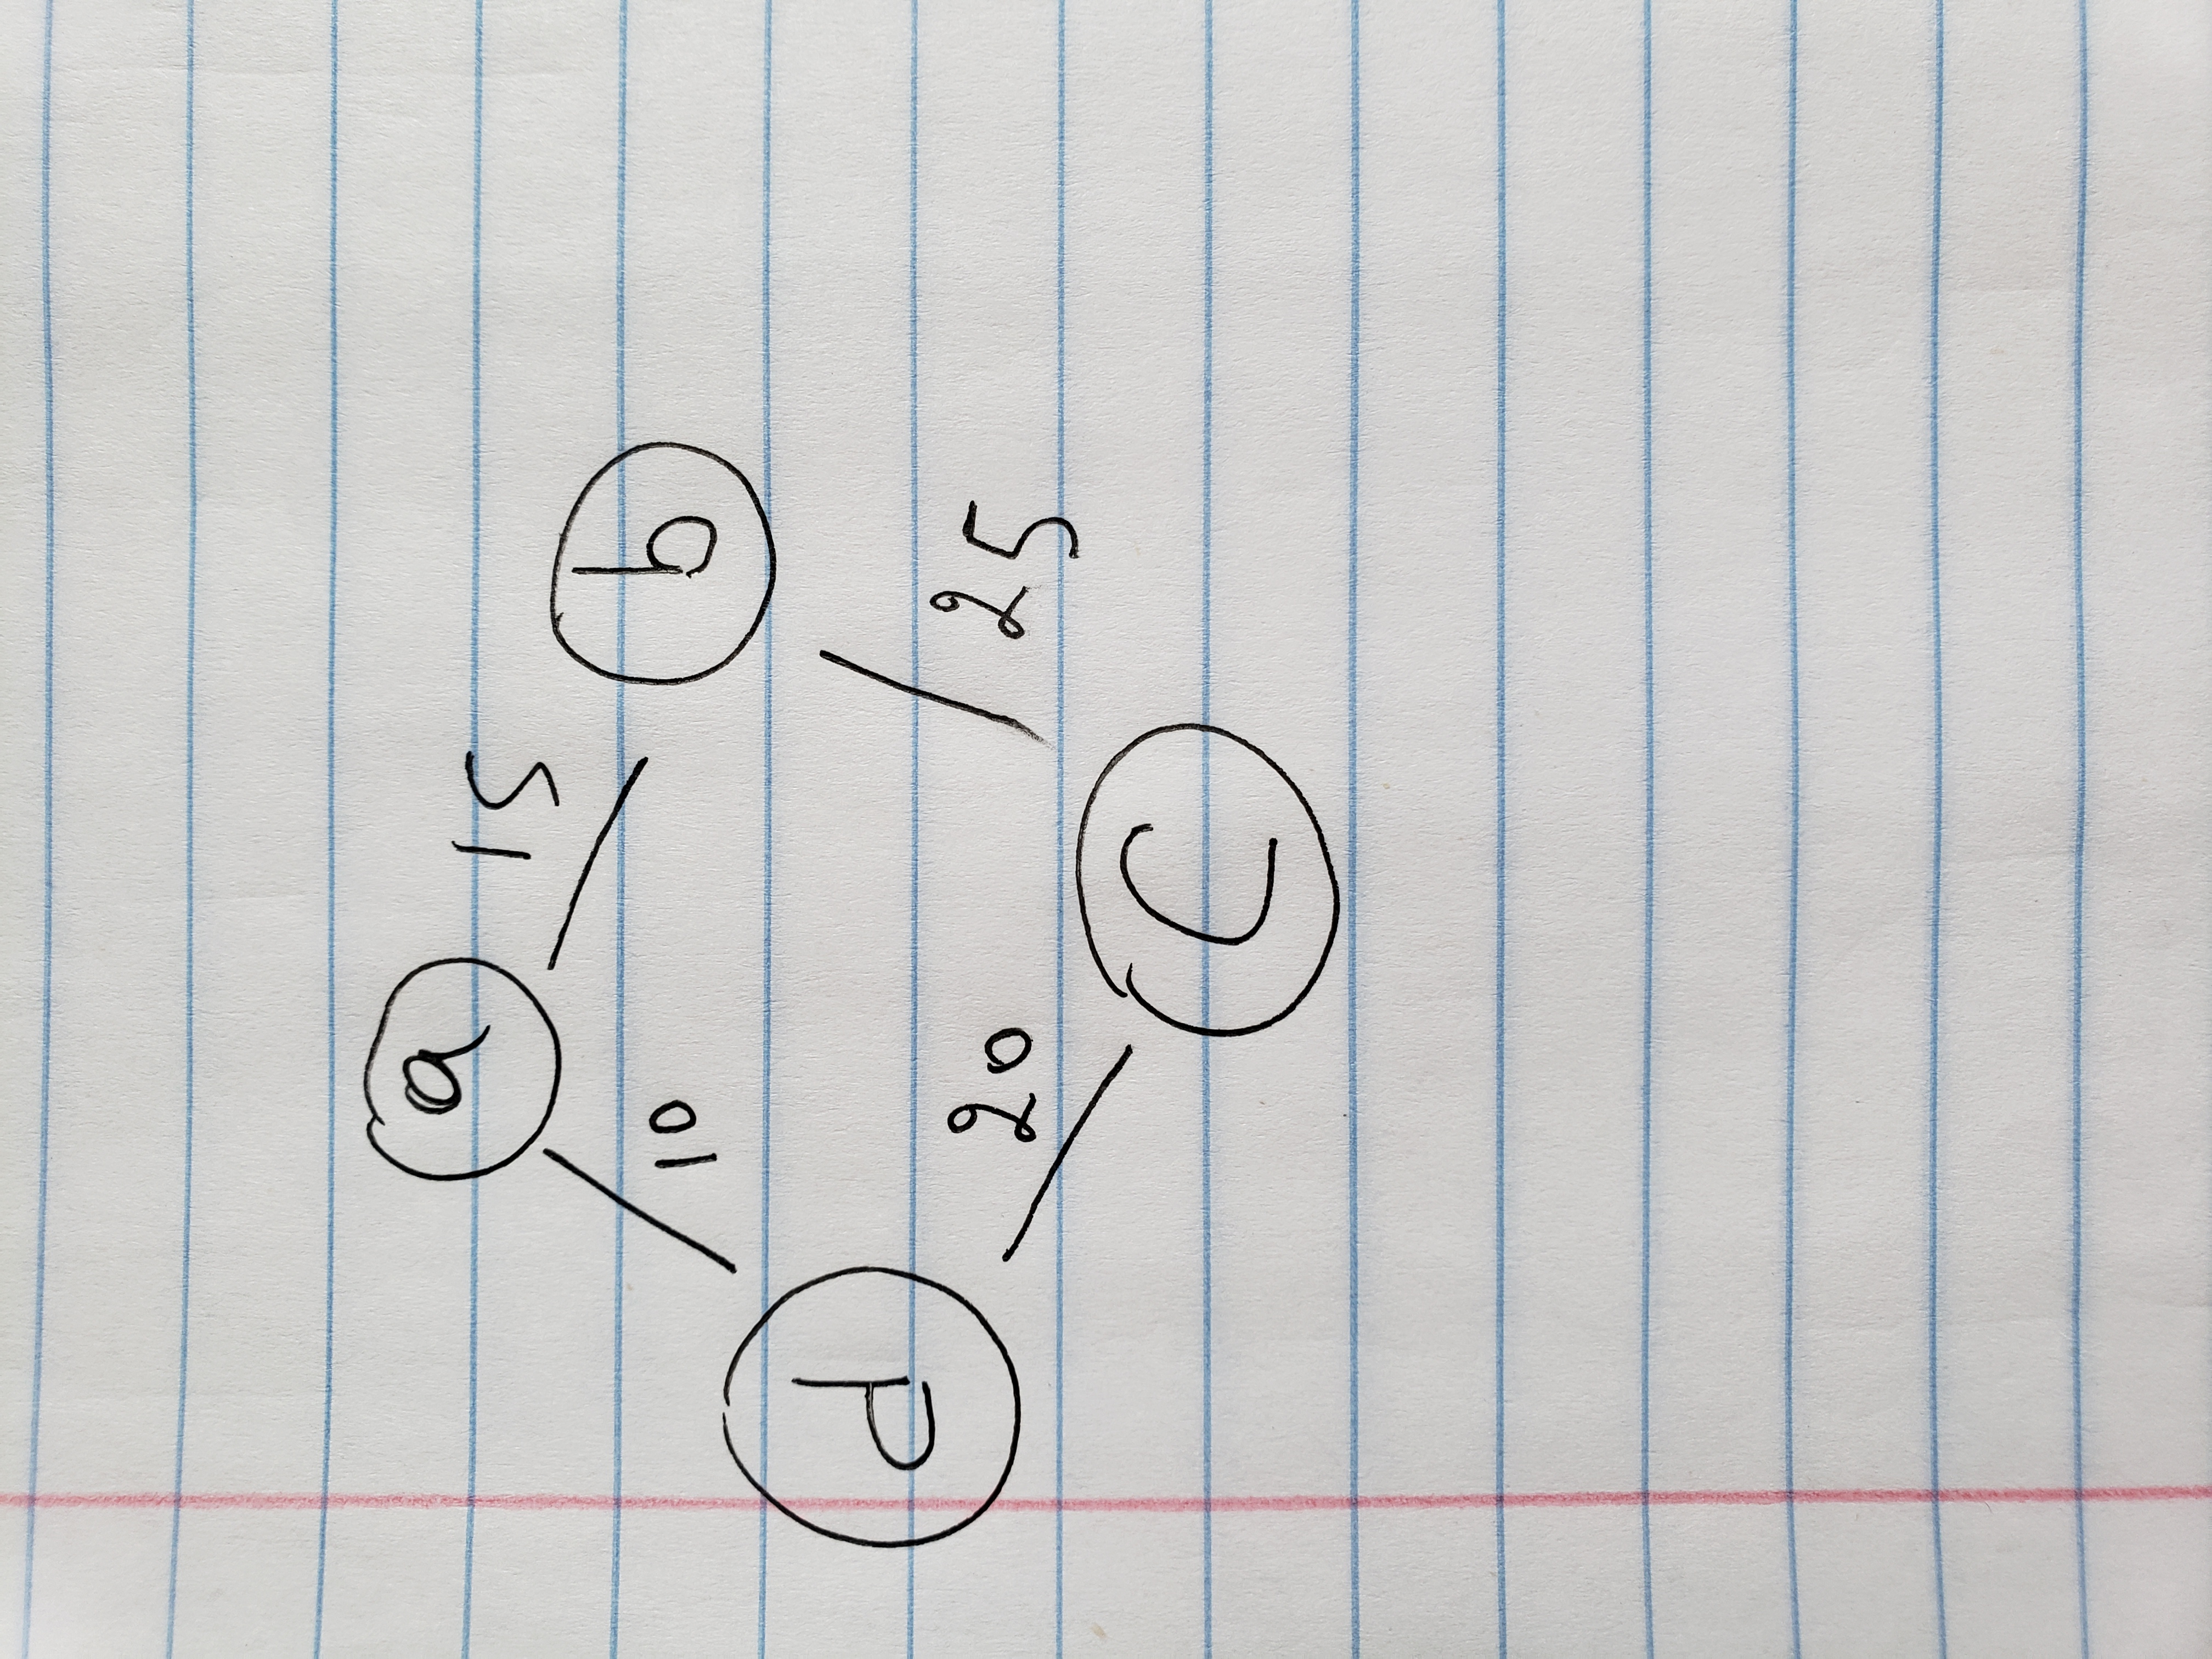 a
15
b
10
d
20
25
C